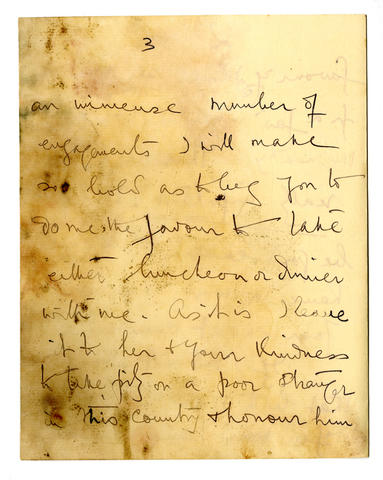 3
an immense number of
engagements I will make
so bold as to beg you to
do me the favour to take
either luncheon or dinner
with me. As it is I leave
it to her & your Kindness
to take pity on a poor stranger
in this country & honour him